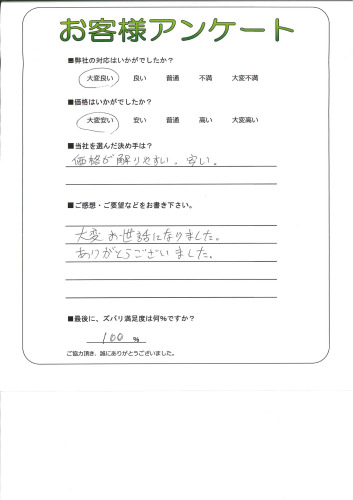 お客様アンケート
■弊社の対応はいかがでしたか？
大変良い 良い 普通 不満 大変不満
■価格はいかがでしたか？
大変安い 安い 普通 高い 大変高い
■当社を選んだ決め手は？
価格が解りやすい。安い。
■ご感想・ご要望などをお書き下さい。
大変お世話になりました。
ありがとうございました。
■最後に、ズバリ満足度は何％ですか？
100 ％
ご協力頂き、誠にありがとうございました。